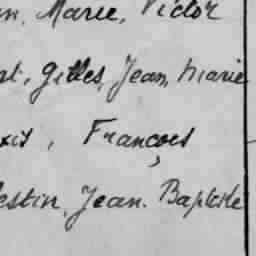 n, Marie, Victor
st, Gilles, Jean Marie
xis, François
estin, Jean. Baptiste